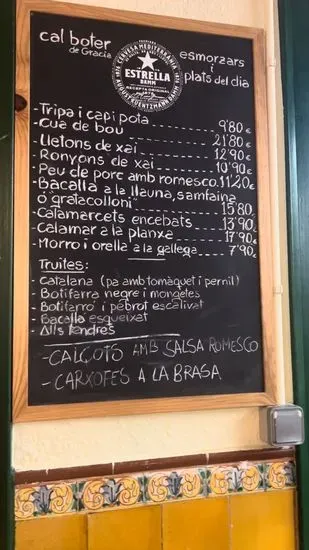 cal boter
de Gràcia
esmorzars
i
plats del dia
CERVESA MEDITERRÀNIA
ESTRELLA
DAMM
RECEPTA ORIGINAL
1876
AUGUST KUENTZMANN DAMM
-Tripa i cap i pota 9'80€
-Cua de bou 21'80€
-Lletons de xai 12'90€
-Ronyons de xai 10'90€
-Peu de porc amb romesco. 11'20€
-Bacallà a la llauna, samfaina
o "gratacolloni" 15'80€
-Calamarcets encebats 13'90€
-Calamar a la planxa 17'90€
-Morro i orella a la gallega 7'90€
Truites:
-Catalana (pa amb tomàquet i pernil)
-Botifarra negre i mongetes
-Botifarró i pebrot escalivat
-Bacallà esqueixat
-Alls tendres
-CALÇOTS AMB SALSA ROMESCO
-CARXOFES A LA BRASA